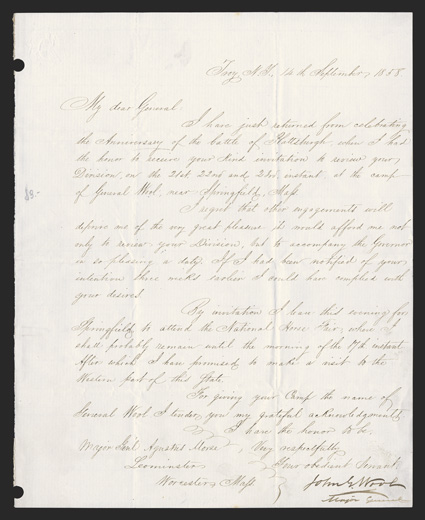 Troy, N.Y. 14th September, 1858.
My dear General
I have just returned from celebrating
the Anniversary of the battle of Plattsburgh, when I had
the honor to receive your kind invitation to review your
Division, on the 21st 22nd and 23d, instant, at the camp
of General Wool, near Springfield, Mass.
I regret that other engagements will
deprive me of the very great pleasure it would afford me not
only to review your Division, but to accompany the Governor
in so pleasing a duty. If I had been notified of your
intention three weeks earlier I could have complied with
your desires.
By invitation I leave this evening for
Springfield to attend the National Horse Fair, where I
shall probably remain until the morning of the 17th instant
After which I have promised to make a visit to the
Western part of this State.
For giving your Camp the name of
General Wool I tender you my grateful acknowledgments
I have the honor to be
Major Genl Agustus Morse, Very respectfully
Leominster Your obedient Servant
Worcester, Mass. John E Wool
Major General